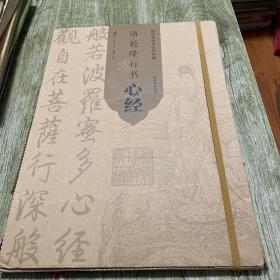 般若波羅蜜多心經
觀自在菩薩行深般
清乾隆行书
心经